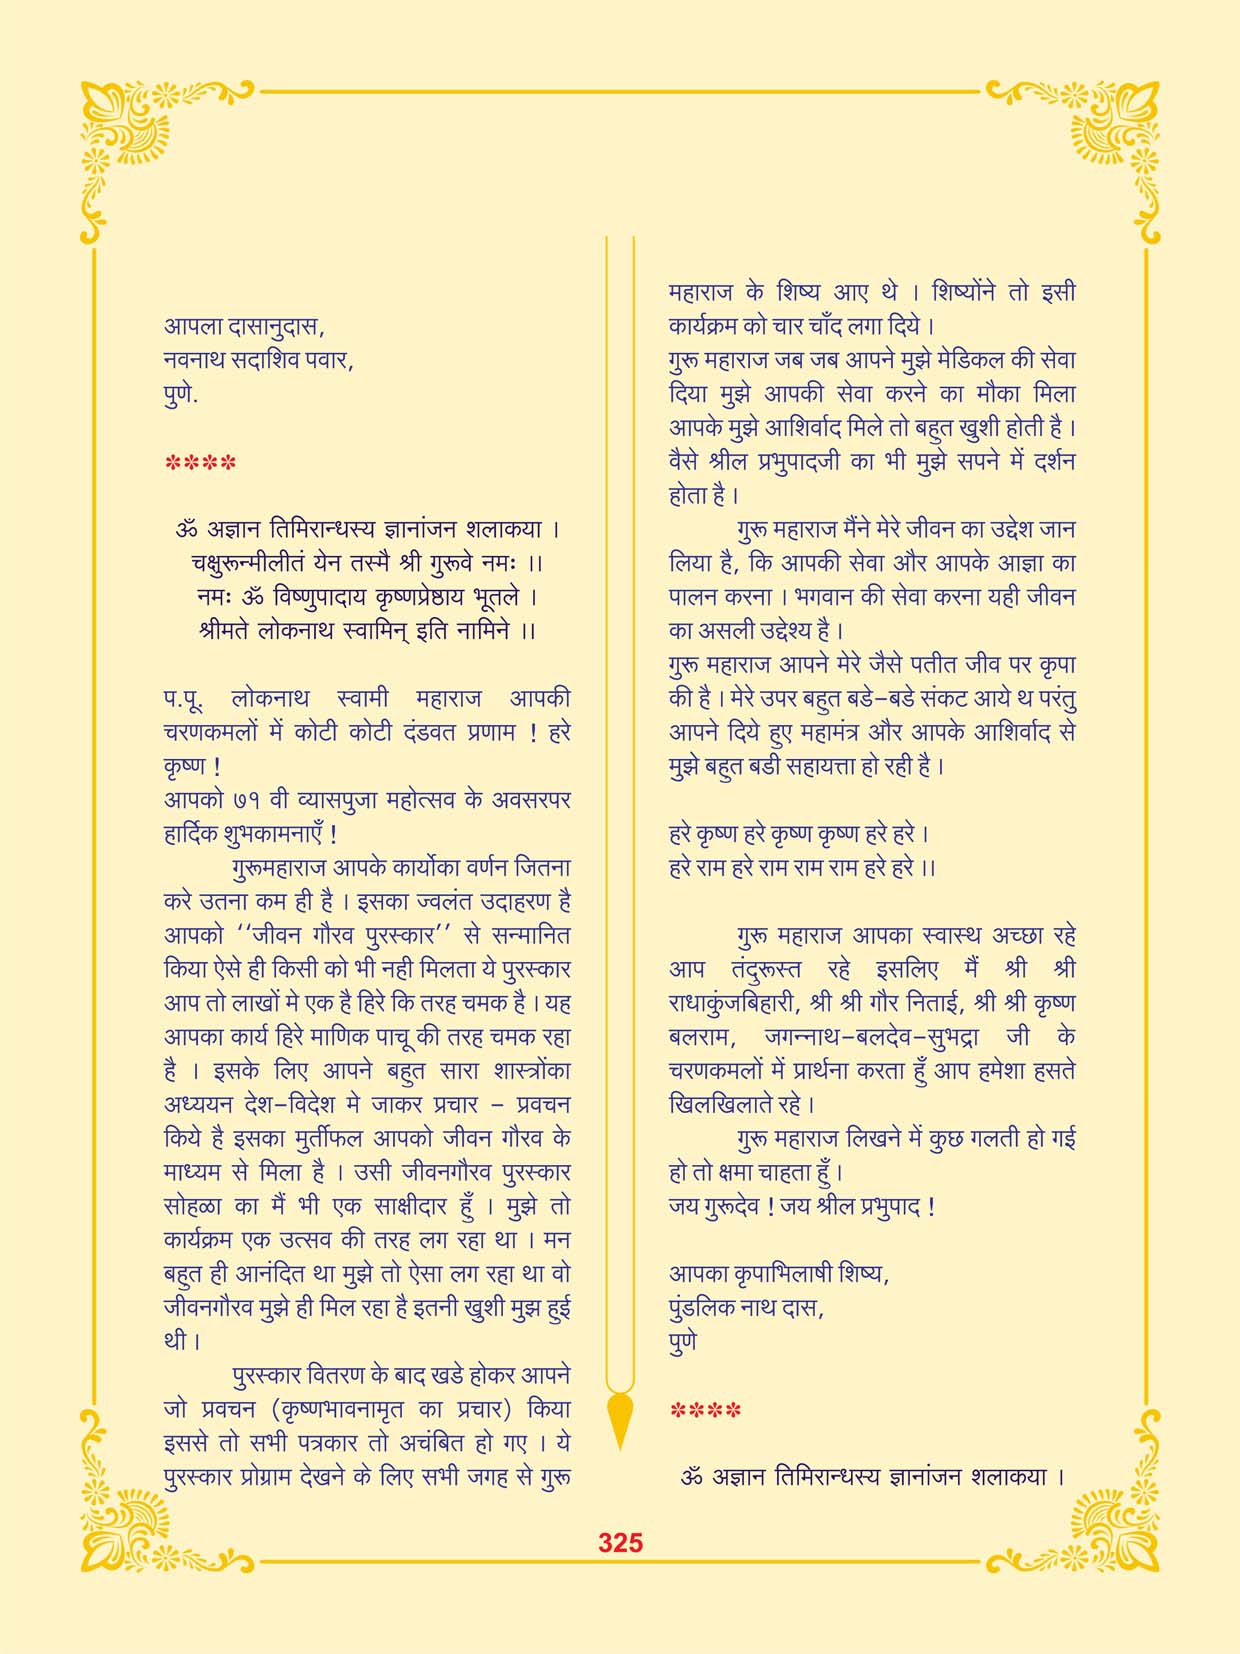 आपला दासानुदास,
नवनाथ सदाशिव पवार,
पुणे.
****
ॐ अज्ञान तिमिरान्धस्य ज्ञानांजन शलाकया ।
चक्षुरून्मीलीतं येन तस्मै श्री गुरूवे नमः ।।
नमः ॐ विष्णुपादाय कृष्णप्रेष्ठाय भूतले ।
श्रीमते लोकनाथ स्वामिन् इति नामिने ।।
प.पू. लोकनाथ स्वामी महाराज आपकी
चरणकमलों में कोटी कोटी दंडवत प्रणाम ! हरे
कृष्ण !
आपको ७१ वी व्यासपुजा महोत्सव के अवसरपर
हार्दिक शुभकामनाएँ !
गुरूमहाराज आपके कार्योका वर्णन जितना
करे उतना कम ही है । इसका ज्वलंत उदाहरण है
आपको ‘‘जीवन गौरव पुरस्कार’’ से सन्मानित
किया ऐसे ही किसी को भी नही मिलता ये पुरस्कार
आप तो लाखों मे एक है हिरे कि तरह चमक है । यह
आपका कार्य हिरे माणिक पाचू की तरह चमक रहा
है । इसके लिए आपने बहुत सारा शास्त्रोंका
अध्ययन देश-विदेश मे जाकर प्रचार - प्रवचन
किये है इसका मुर्तीफल आपको जीवन गौरव के
माध्यम से मिला है । उसी जीवनगौरव पुरस्कार
सोहळा का मैं भी एक साक्षीदार हूँ । मुझे तो
कार्यक्रम एक उत्सव की तरह लग रहा था । मन
बहुत ही आनंदित था मुझे तो ऐसा लग रहा था वो
जीवनगौरव मुझे ही मिल रहा है इतनी खुशी मुझ हुई
थी ।
पुरस्कार वितरण के बाद खडे होकर आपने
जो प्रवचन (कृष्णभावनामृत का प्रचार) किया
इससे तो सभी पत्रकार तो अचंबित हो गए । ये
पुरस्कार प्रोग्राम देखने के लिए सभी जगह से गुरू
महाराज के शिष्य आए थे । शिष्योंने तो इसी
कार्यक्रम को चार चाँद लगा दिये ।
गुरू महाराज जब जब आपने मुझे मेडिकल की सेवा
दिया मुझे आपकी सेवा करने का मौका मिला
आपके मुझे आशिर्वाद मिले तो बहुत खुशी होती है ।
वैसे श्रील प्रभुपादजी का भी मुझे सपने में दर्शन
होता है ।
गुरू महाराज मैंने मेरे जीवन का उद्देश जान
लिया है, कि आपकी सेवा और आपके आज्ञा का
पालन करना । भगवान की सेवा करना यही जीवन
का असली उद्देश्य है ।
गुरू महाराज आपने मेरे जैसे पतीत जीव पर कृपा
की है । मेरे उपर बहुत बडे-बडे संकट आये थ परंतु
आपने दिये हुए महामंत्र और आपके आशिर्वाद से
मुझे बहुत बडी सहायत्ता हो रही है ।
हरे कृष्ण हरे कृष्ण कृष्ण हरे हरे ।
हरे राम हरे राम राम राम हरे हरे ।।
गुरू महाराज आपका स्वास्थ अच्छा रहे
आप तंदुरूस्त रहे इसलिए मैं श्री श्री
राधाकुंजबिहारी, श्री श्री गौर निताई, श्री श्री कृष्ण
बलराम, जगन्नाथ-बलदेव-सुभद्रा जी के
चरणकमलों में प्रार्थना करता हूँ आप हमेशा हसते
खिलखिलाते रहे ।
गुरू महाराज लिखने में कुछ गलती हो गई
हो तो क्षमा चाहता हूँ ।
जय गुरूदेव ! जय श्रील प्रभुपाद !
आपका कृपाभिलाषी शिष्य,
पुंडलिक नाथ दास,
पुणे
****
ॐ अज्ञान तिमिरान्धस्य ज्ञानांजन शलाकया ।
325